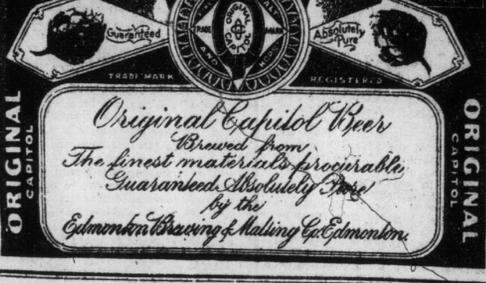 Guaranteed
Absolutely Pure
TRADE MARK
ORIGINAL CAPITOL
AND
TRADE MARK
REGISTERED
ORIGINAL CAPITOL
Original Capitol Beer
Brewed from
The finest materials procurable,
Guaranteed Absolutely Pure
by the
Edmonton Brewing & Malting Co. Edmonton.
ORIGINAL CAPITOL